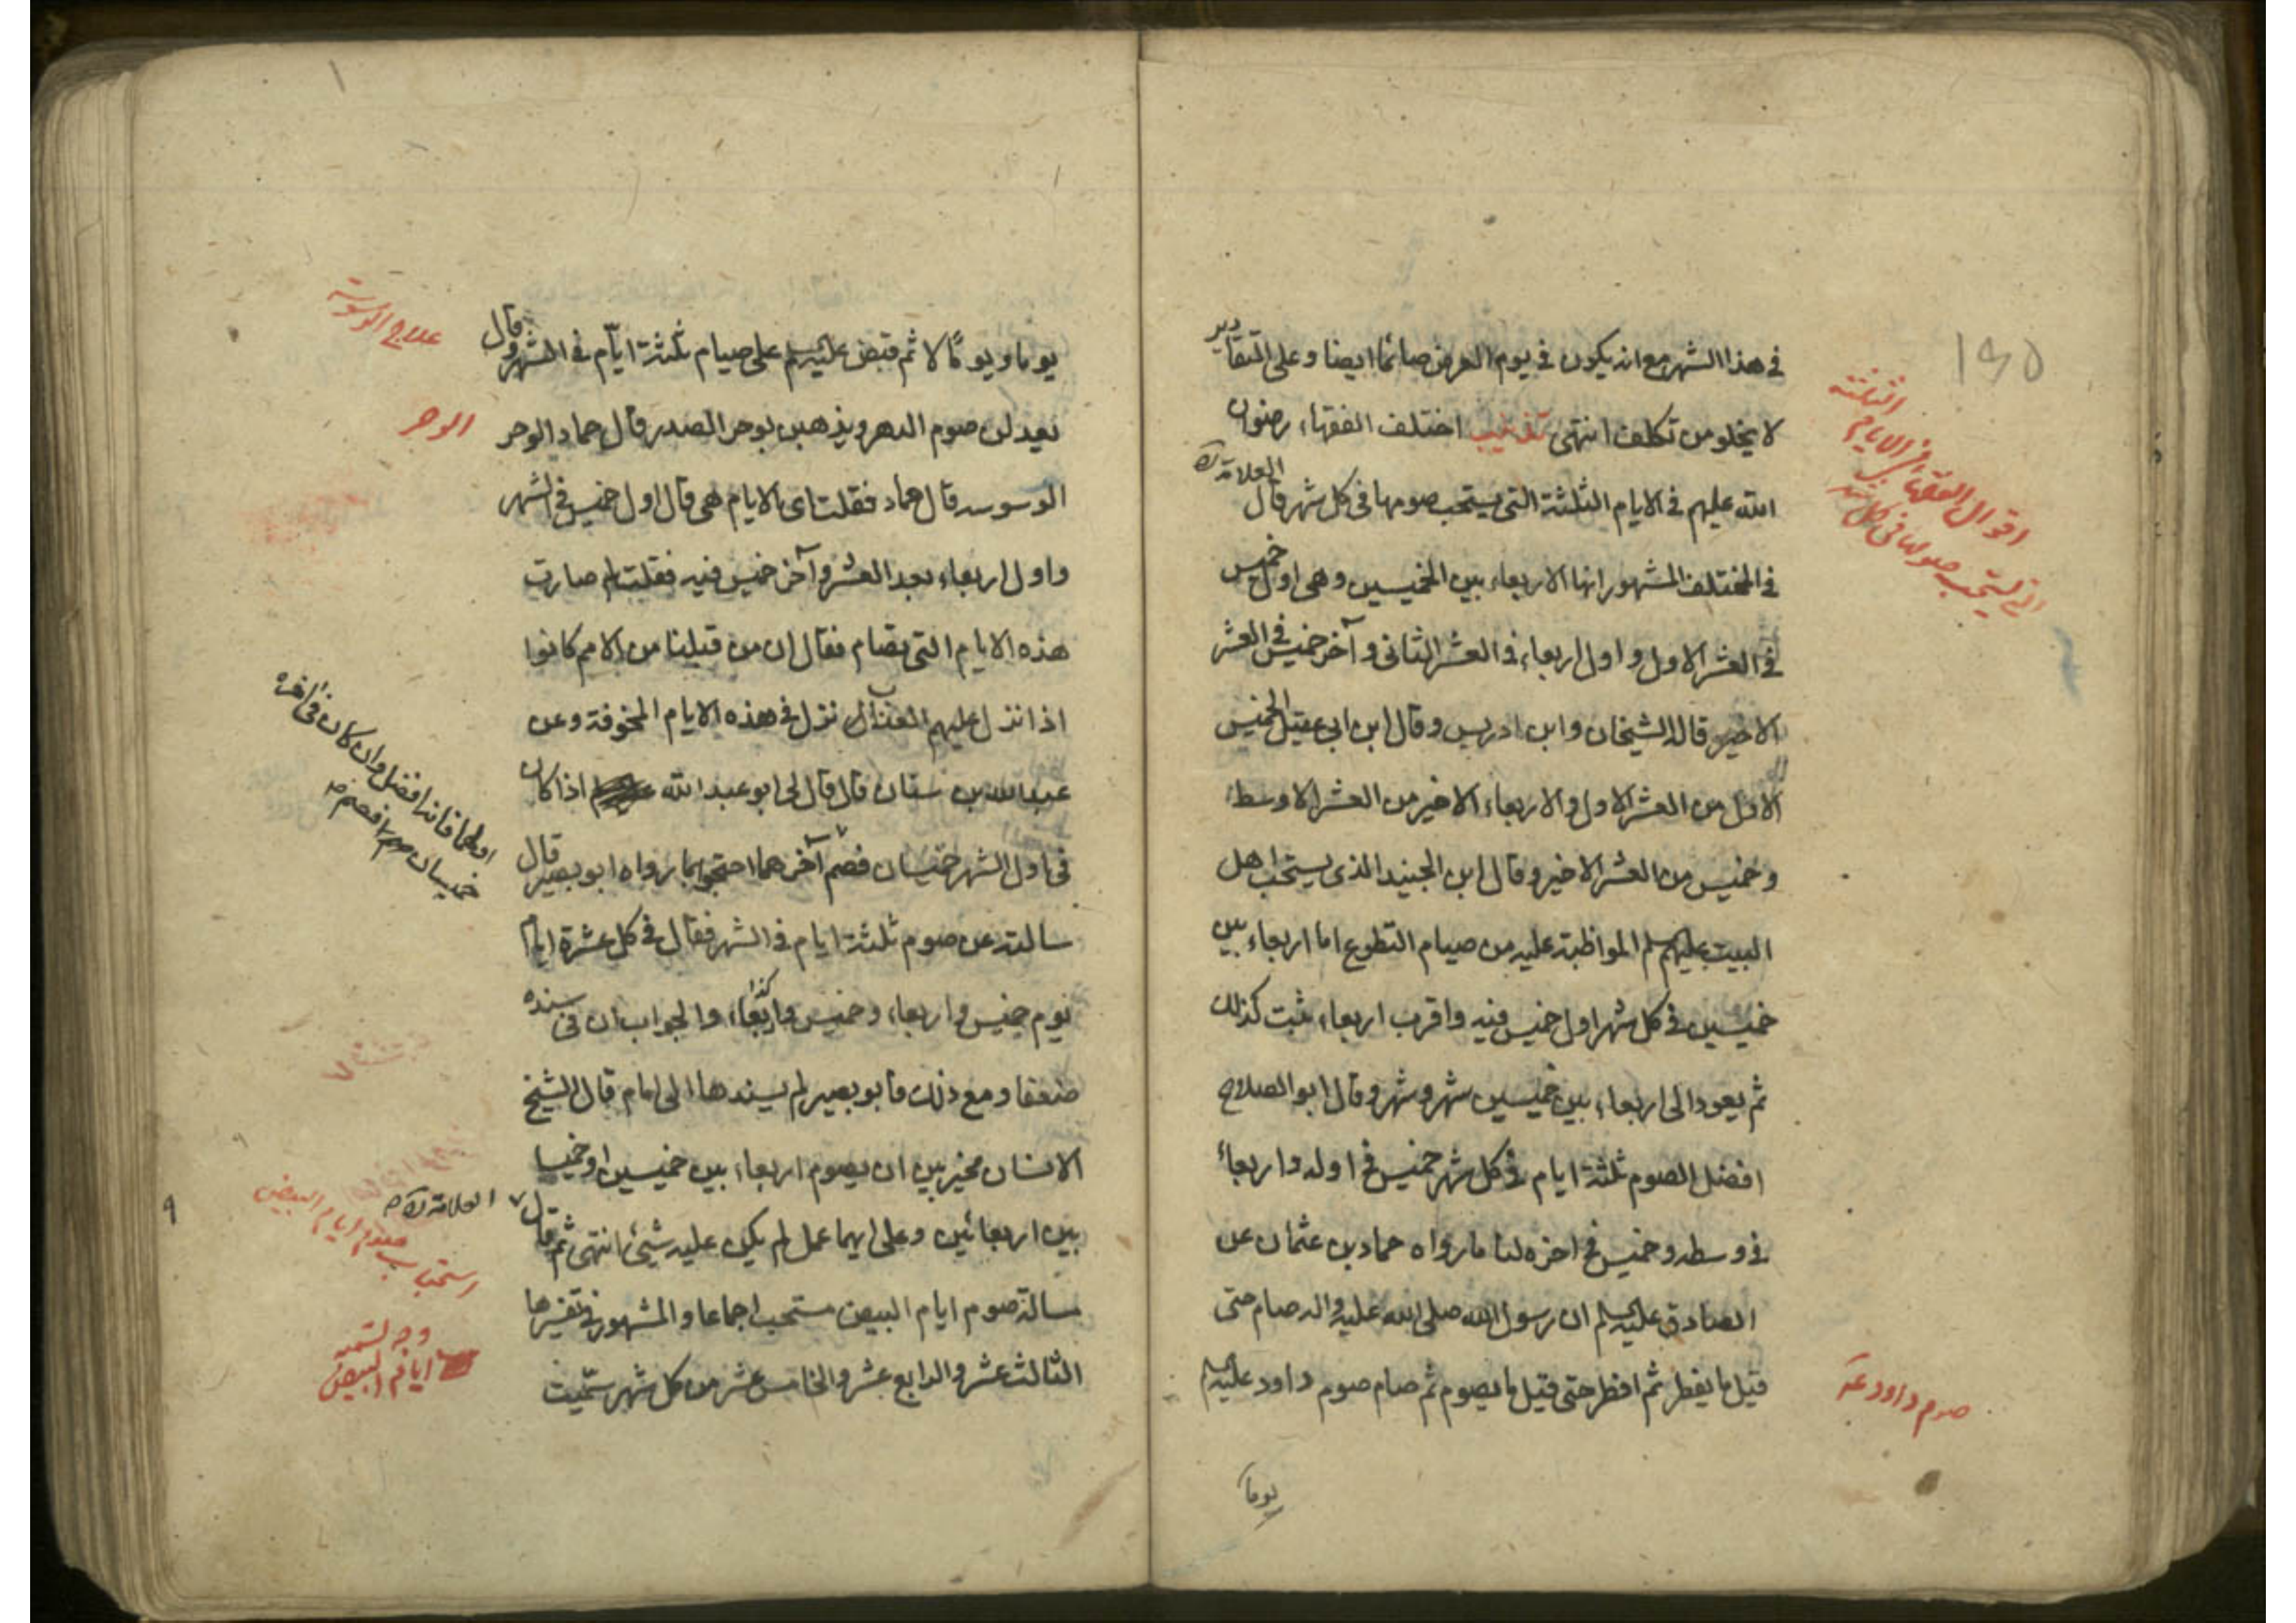 في هذا الشهر مع انه يكون في يوم العرض صائما ايضا وعلى التقادير
لا يخلو من تكلف انتهى تذنيب اختلف الفقهاء رضوان
الله عليهم في الايام الثلثة التي يستحب صومها في كل شهر قال العلامة ره
في المختلف المشهور انها الاربعاء بين الخميسين وهي اول خميس
في العشر الاول واول اربعاء في العشر الثاني وآخر خميس في العشر
الاخير قاله الشيخان وابن ادريس وقال ابن ابي عقيل الخميس
الاول من العشر الاول والاربعاء الاخير من العشر الاوسط
وخميس من العشر الاخير وقال ابن الجنيد الذي يستحب اهل
البيت عليهم السلم المواظبة عليه من صيام التطوع اما اربعاء بين
خميسين في كل شهر اول خميس فيه واقرب اربعاء ثبت كذلك
ثم يعود الى اربعاء بين خميسين شهر وشهر وقال ابو الصلاح
افضل الصوم ثلثة ايام في كل شهر خميس في اوله واربعاء
في وسطه وخميس في اخره لنا ما رواه حماد بن عثمان عن
الصادق عليه السلم ان رسول الله صلى الله عليه واله صام حتى
قيل ما يفطر ثم افطر حتى قيل ما يصوم ثم صام صوم داود عليه السلم
يوما
١٩٥
اقوال الفقهاء في الايام الثلثة
التي يستحب صومها في كل شهر
صوم داود ع
يوما ويوما لا ثم قبض عليه السلم على صيام ثلثة ايام في الشهر وقال
يعدلن صوم الدهر ويذهبن بوحر الصدر قال حماد الوحر
الوسوسه قال حماد فقلت اي الايام هي قال اول خميس في الشهر
واول اربعاء بعد العشر وآخر خميس فيه فقلت لم صارت
هذه الايام التي تصام فقال ان من قبلنا من الامم كانوا
اذا نزل عليهم العذاب نزل في هذه الايام المخوفة وعن
عبد الله بن سنان قال قال لي ابو عبد الله اذا كان
في اول الشهر خميسان فصم آخرهما احتجوا بما رواه ابو بصير قال
سالته عن صوم ثلثة ايام في الشهر فقال في كل عشرة ايام
يوم خميس واربعاء وخميس واربعاء كذا والجواب ان في سنده
ضعفا ومع ذلك فابو بصير لم يسندها الى امام قال الشيخ
الانسان مخير بين ان يصوم اربعاء بين خميسين او خميسا
بين اربعائين وعلى ايهما عمل لم يكن عليه شيئ انتهى ثم قال
مسالة صوم ايام البيض مستحب اجماعا والمشهور في تفسيرها
الثالث عشر والرابع عشر والخامس عشر من كل شهر سميت
علاج الوسوسة
الوحر
اولهما فانه افضل وان كان في آخره
خميسان فصم
العلامة ره
استحباب صوم ايام البيض
وجه تسمية
ايام البيض